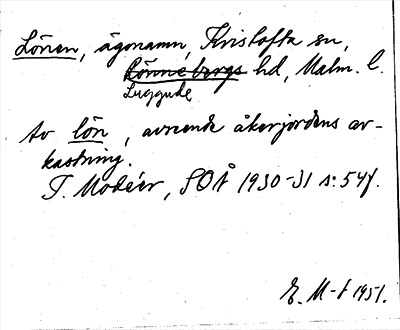 Lönen, ägonamn, Kristofta sn,
Rönnebergs hd, Malm. l.
Luggude
Av lön, avseende åkerjordens av-
kastning.
I. Modéer, SOÅ 1930-31 s: 54f.
E. M-t 1951.